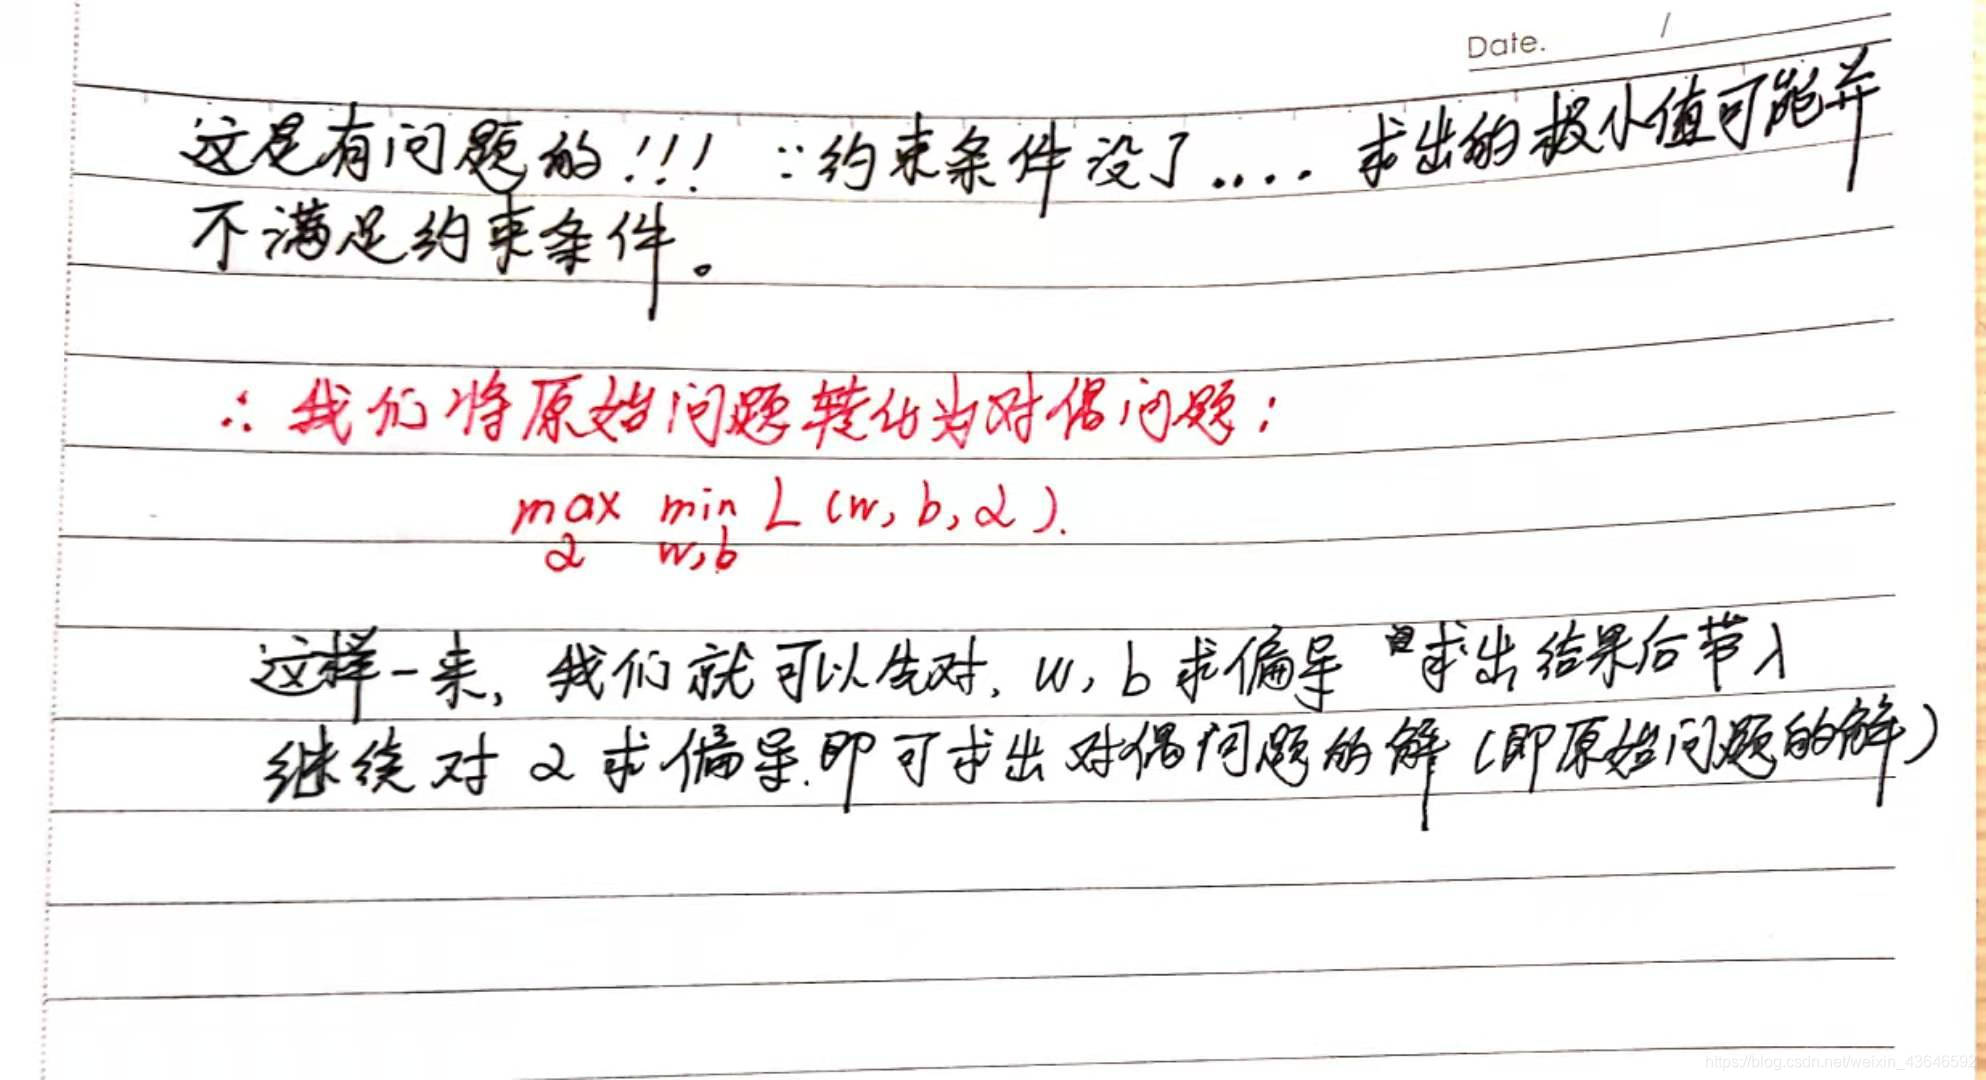 Date. /
这是有问题的!!! ∵约束条件没了.... 求出的极小值可能并
不满足约束条件。
∴我们将原始问题转化为对偶问题:
max min L (w, b, α).
α w,b
这样一来, 我们就可以先对, w, b 求偏导 求出结果后带入
继续对 α 求偏导.即可求出对偶问题的解(即原始问题的解)
https://blog.csdn.net/weixin_43646592